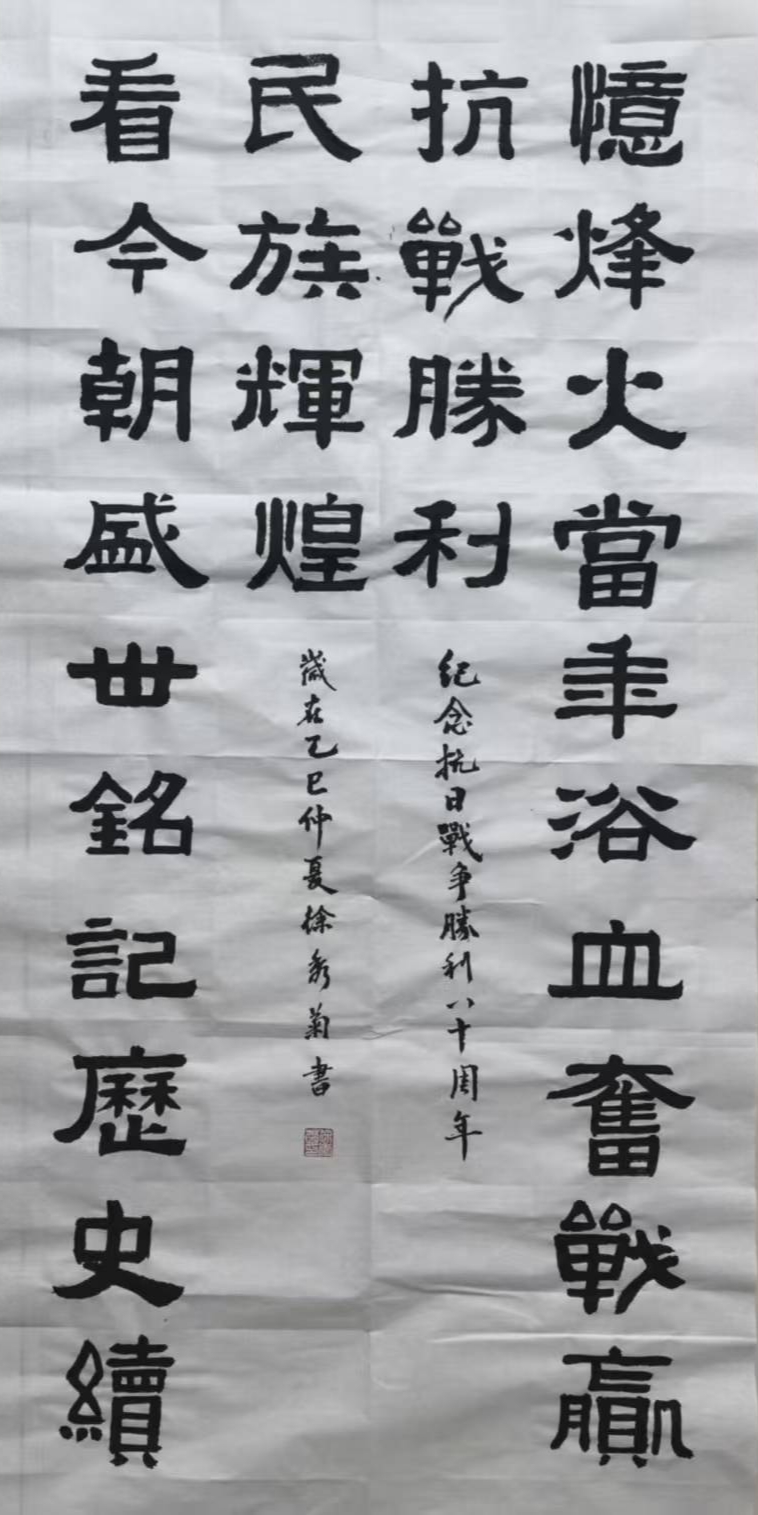 憶烽火當年浴血奮戰贏
抗戰勝利
紀念抗日戰争勝利八十周年
看今朝盛世銘記歷史續
民族輝煌
歲在乙巳仲夏徐秀菊書